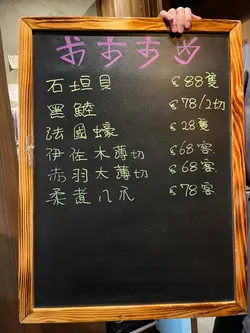 おすすめ
石垣貝 $88隻
黑鯥 $78/2切
法國蠔 $28隻
伊佐木薄切 $68客
赤羽太薄切 $68客
柔煮八爪 $78客